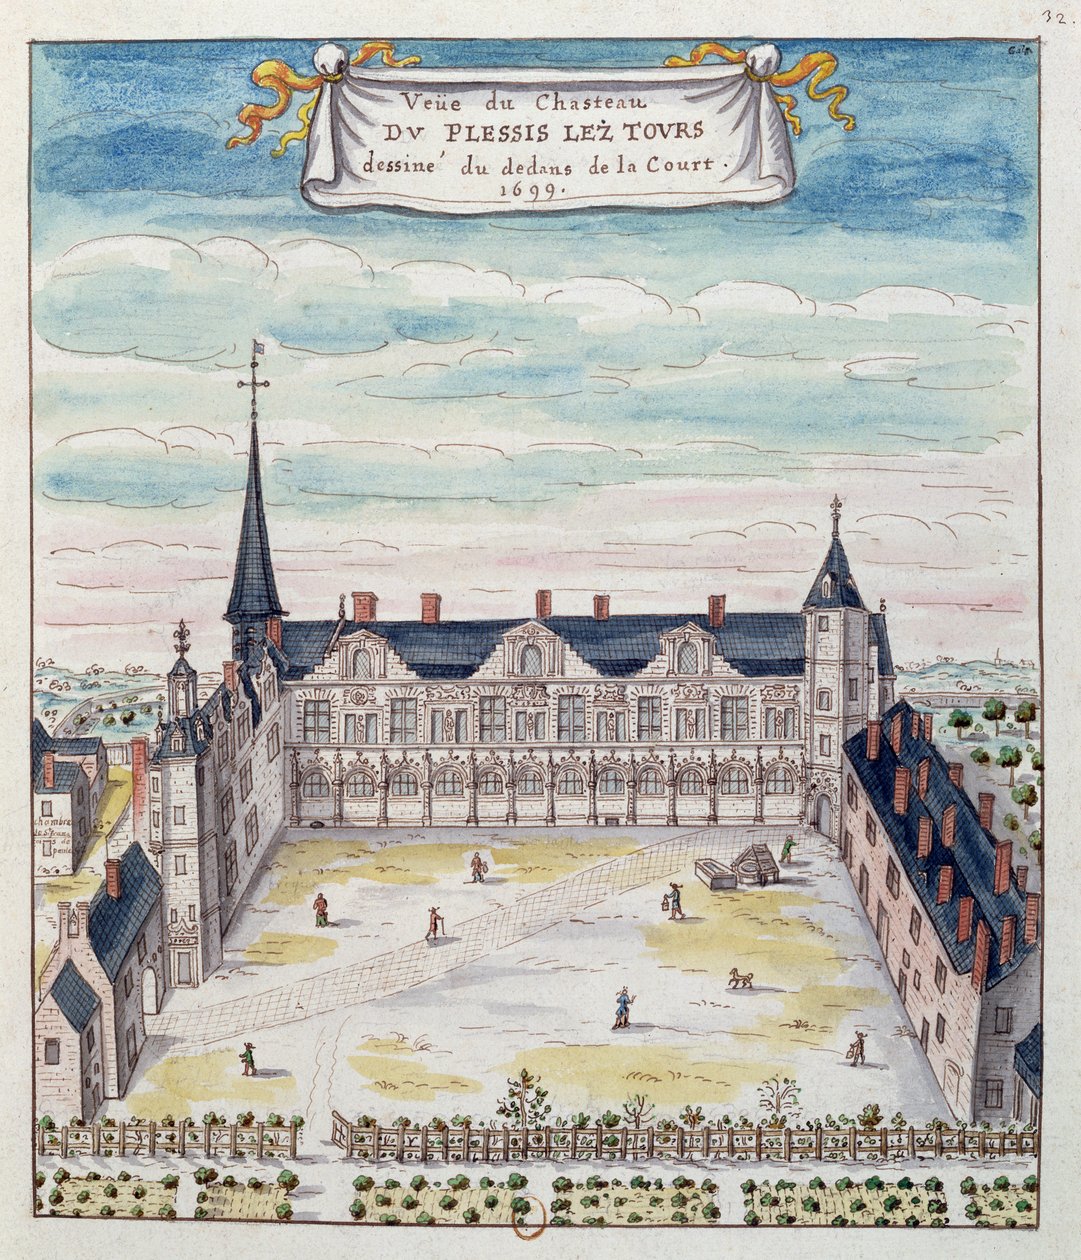 32.
Gal.
Veüe du Chasteau
DV PLESSIS LEŻ TOVRS
dessiné du dedans de la Court.
1699.
chambre
de St. fran
de
paule